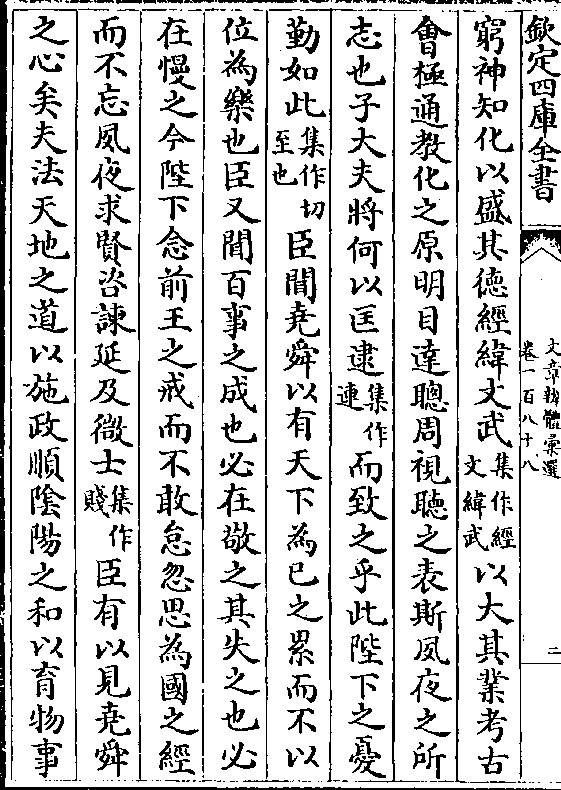 欽定四庫全書
文章辨體彙選
卷一百八十八
二
窮神知化以盛其德經緯文武集作經文緯武以大其業考古
會極通教化之原明目達聰周視聽之表斯夙夜之所
志也子大夫將何以匡逮集作連而致之乎此陛下之憂
勤如此集作切至也臣聞堯舜以有天下為已之累而不以
位為樂也臣又聞百事之成也必在敬之其失之也必
在慢之今陛下念前王之戒而不敢怠忽思為國之經
而不忘夙夜求賢咨諫延及微士集作賤臣有以見堯舜
之心矣夫法天地之道以施政順陰陽之和以育物事